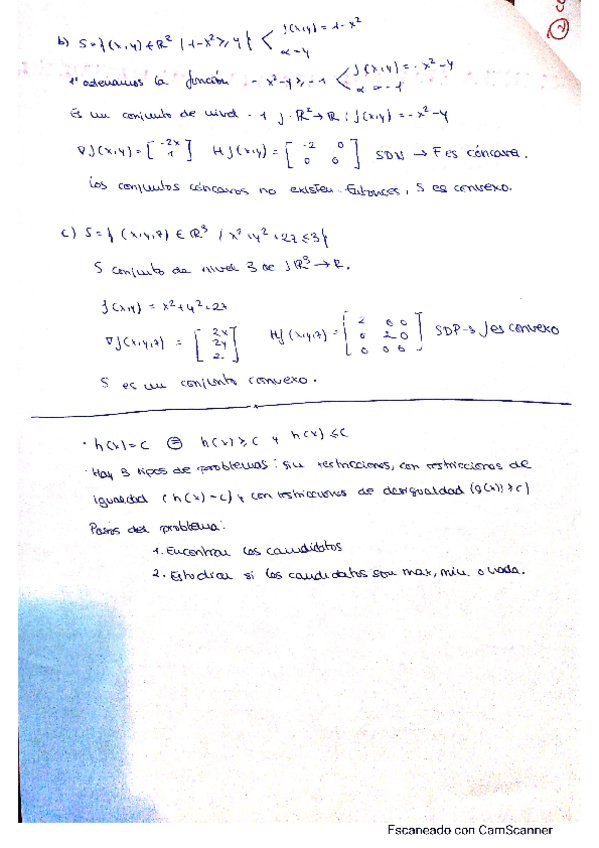 b) S = { (x,y) ∈ R² / 1-x² ≥ y } < f(x,y) = 1-x²
α = y
1º ordenamos la función -x²-y ≥ -1 < f(x,y) = -x²-y
α = -1
Es un conjunto de nivel -1 f: R² → R : f(x,y) = -x²-y
∇f(x,y) = [ -2x 1 ] Hf(x,y) = [ -2 0 0 0 ] SDN → F es cóncava.
Los conjuntos cóncavos no existen. Entonces, S es convexo.
c) S = { (x,y,z) ∈ R³ / x²+y²+2z ≤ 3 }
S conjunto de nivel 3 de f R³ → R.
f(x,y) = x²+y²+2z
∇f(x,y,z) = [ 2x 2y 2 ] Hf(x,y,z) = [ 2 0 0 0 2 0 0 0 0 ] SDP → f es convexo
S es un conjunto convexo.
· h(x) = c ⊜ h(x) ≥ c y h(x) ≤ c
· Hay 3 tipos de problemas: sin restricciones, con restricciones de
igualdad (h(x) = c) y con restricciones de desigualdad (g(x) ≥ c)
Pasos del problema:
1. Encontrar los candidatos
2. Estudiar si los candidatos son max, min o nada.
2
Escaneado con CamScanner